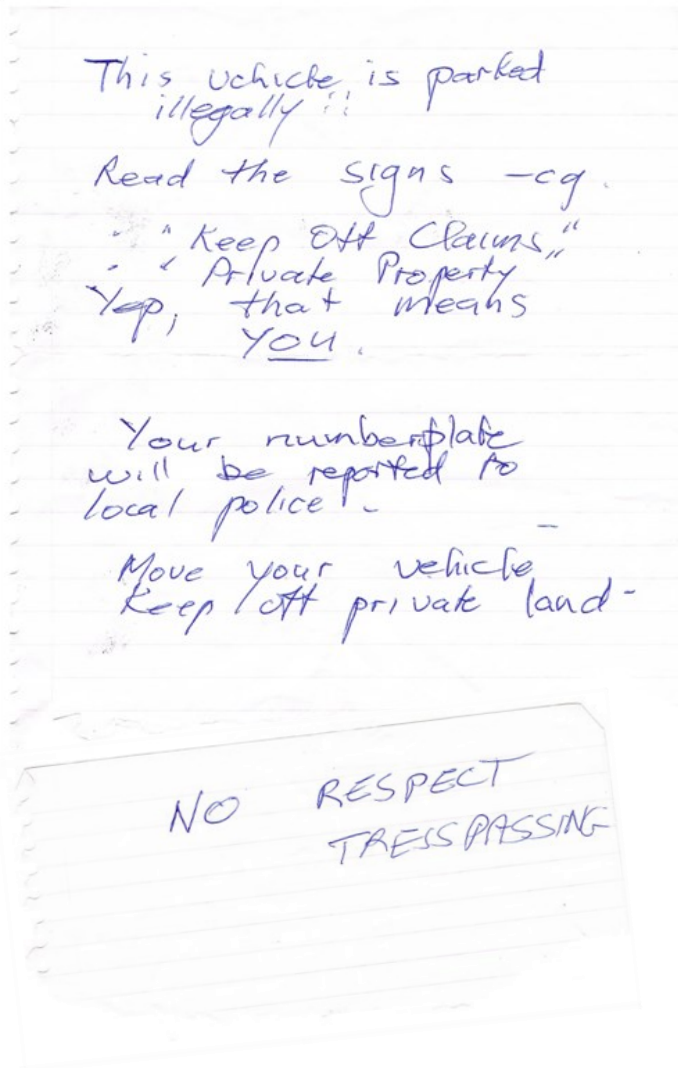 This vehicle is parked
illegally !!
Read the signs - eg.
- "Keep Off Claims"
- "Private Property"
Yep, that means
YOU.
Your numberplate
will be reported to
local police! -
Move your vehicle
Keep off private land -
NO RESPECT
TRESSPASSING